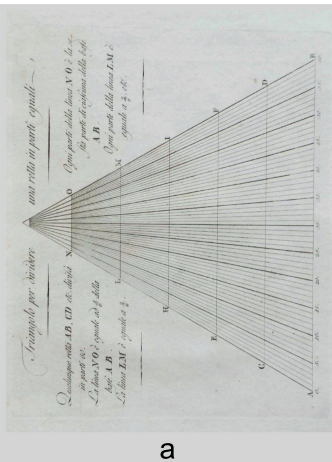 Triangolo per dividere una retta in parti eguali
Qualunque retta AB, CD etc. divisa
in parti
La linea NO è eguale ad della
base AB
La linea LM è eguale a
Ogni parte della linea NO è la se-
sta parte di ciascuna della base
AB
Ogni parte della linea LM è
eguale a etc.
N O
L M
H I
E F
C D
A B
a